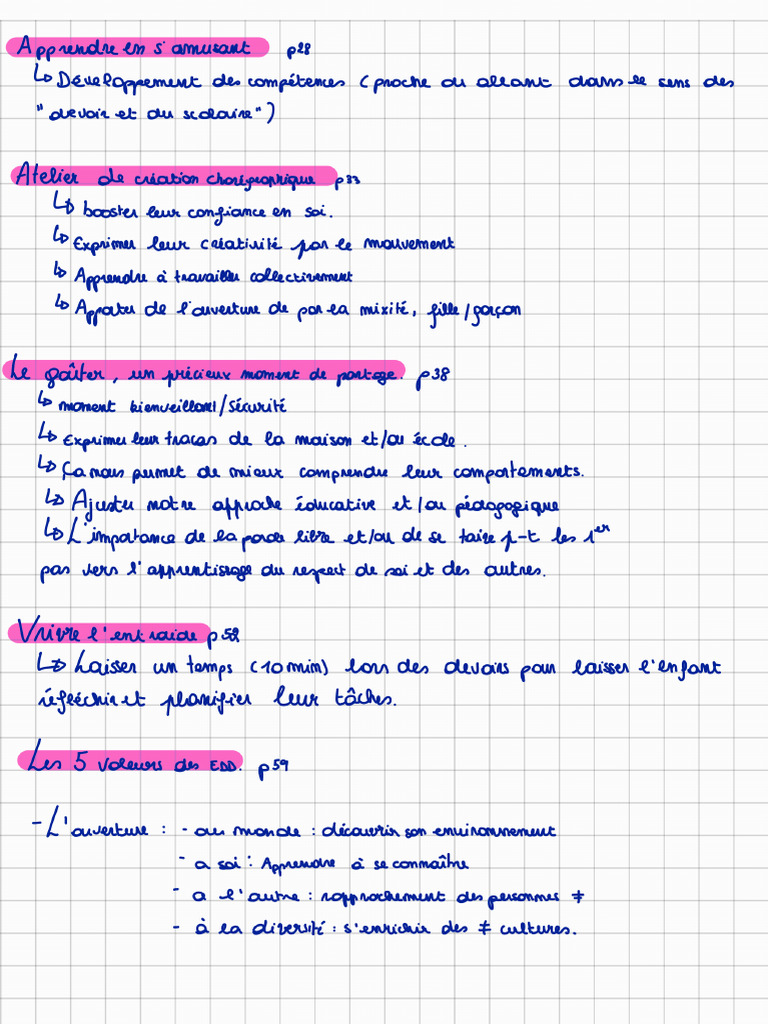 Apprendre en s'amusant p28
↳ Développement des compétences (proche ou allant dans le sens des
"devoir et du scolaire")
Atelier de création chorégraphique p33
↳ booster leur confiance en soi.
↳ Exprimer leur créativité par le mouvement
↳ Apprendre à travailler collectivement
↳ Apporter de l'ouverture de par la mixité, fille/garçon
Le goûter, un précieux moment de partage. p38
↳ moment bienveillant/sécurité
↳ Exprimer leur tracas de la maison et/ou école.
↳ Ça nous permet de mieux comprendre leur comportements.
↳ Ajuster notre approche éducative et/ou pédagogique
↳ L'importance de la parole libre et/ou de se taire p-t les 1er
pas vers l'apprentissage du respect de soi et des autres.
Vrivre l'entraide p58
↳ Laisser un temps (10min) lors des devoirs pour laisser l'enfant
réfléchir et planifier leur tâches.
Les 5 valeurs des EDD. p59
- L'ouverture : - au monde : découvrir son environnement
- a soi : Apprendre à se connaître
- a l'autre : rapprochement des personnes ≠
- à la diversité : s'enrichir des ≠ cultures.